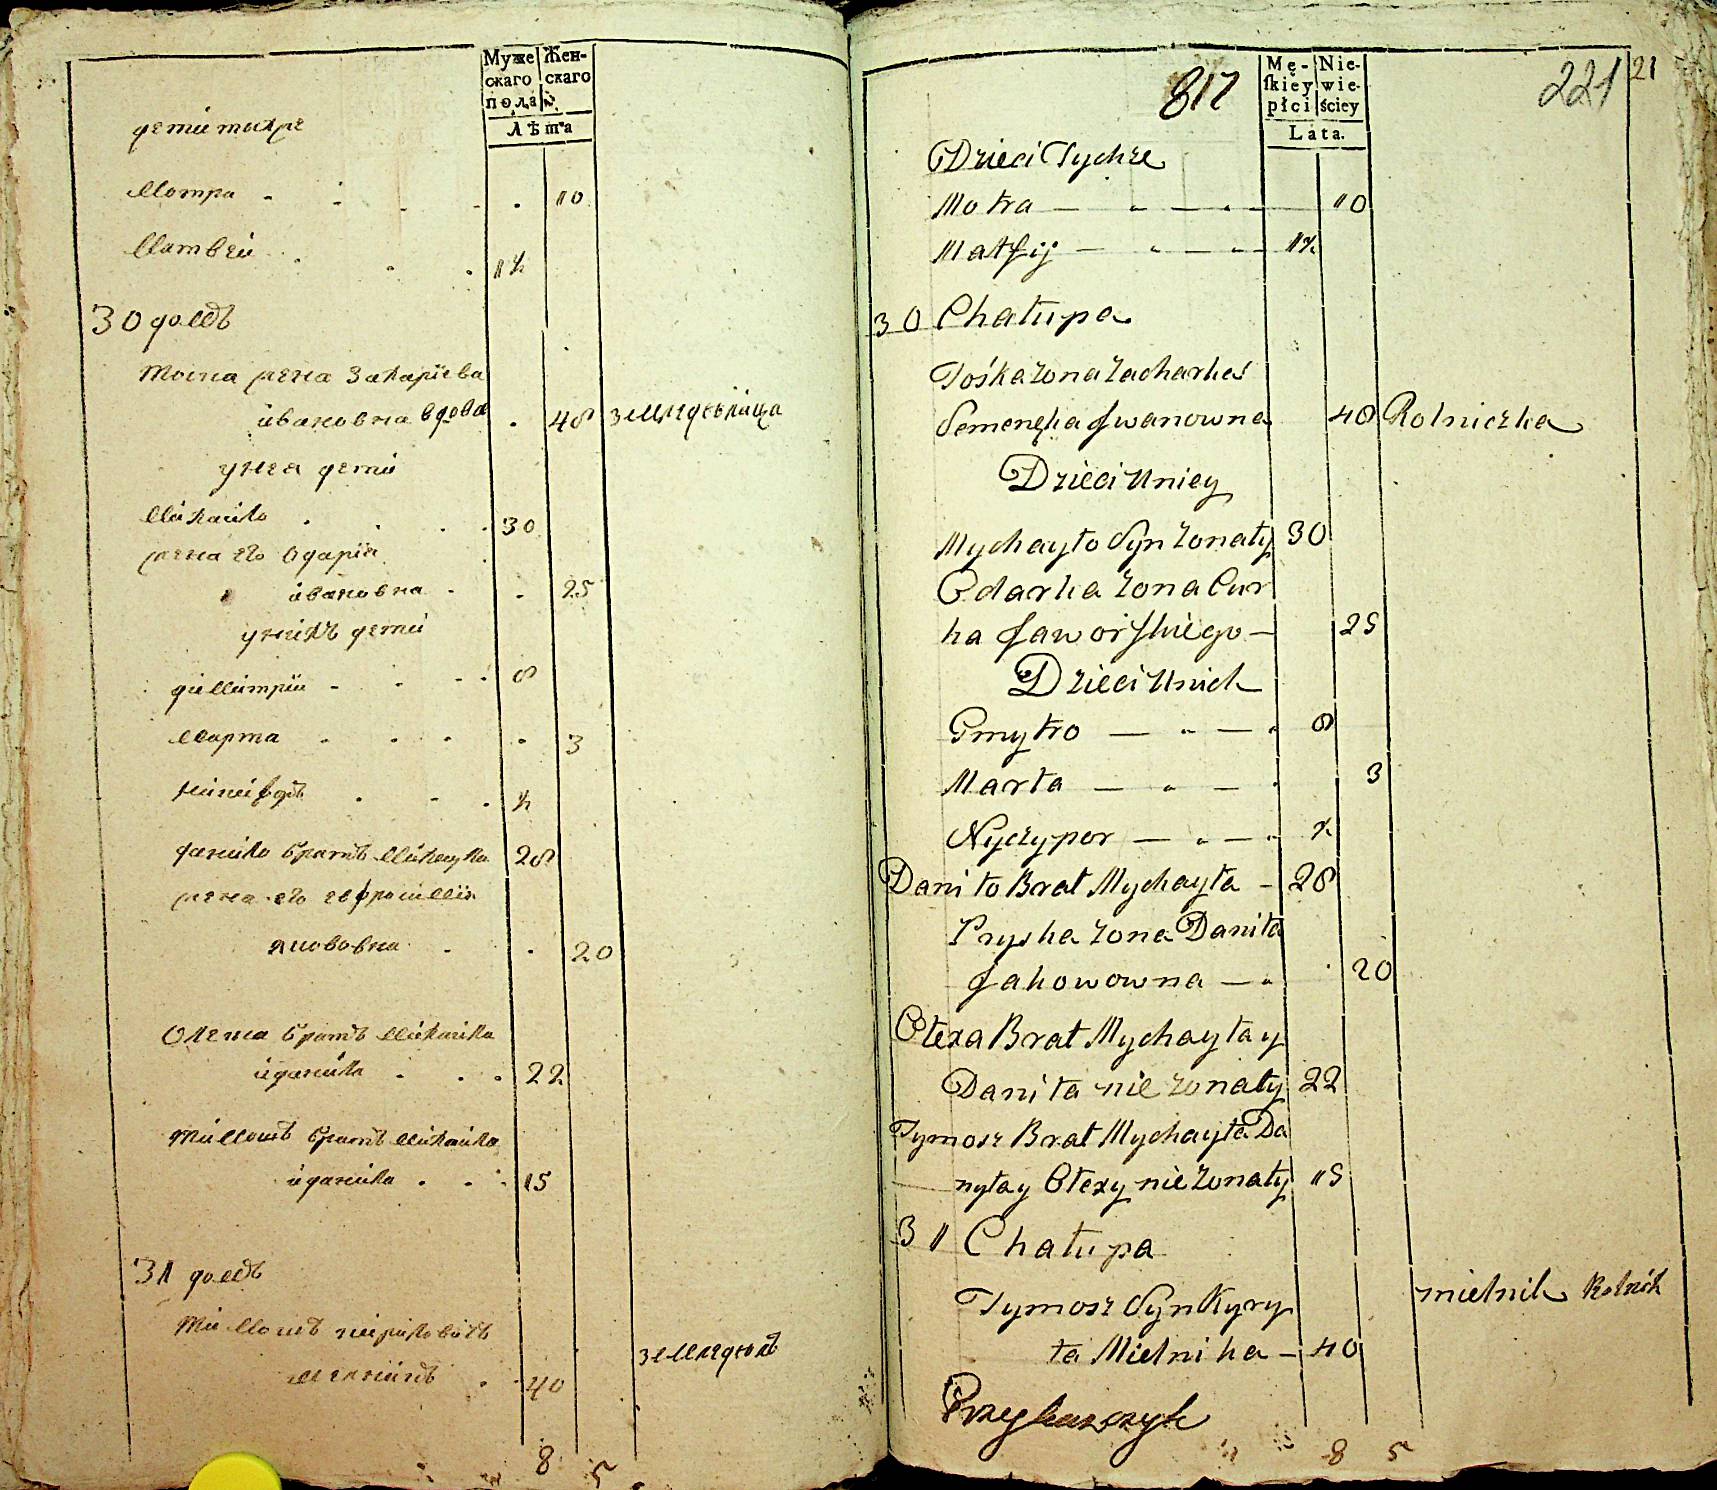 Муже Жен-
скаго скаго
пола
Лѣта
дети техже
Мотра 10
Матвей 1½
30 домъ
Тоска жена Захаріева
ивановна вдова 48 земледелица
у нея дети
Михайло 30
жена его Одарія
ивановна 25
у нихъ дети
Димитрій 8
Марта 3
½
Данило братъ Михайла 28
жена его Ефросимія
якововна 20
Олекса братъ Михайла
и данила 22
Тимошъ братъ Михайла
и данила 15
31 домъ
Тимошъ
мелникъ 40 земледелъ
8 5
817 221 21
Mę- Nie-
skiey wie-
płci ściey
Lata.
Dzieci Tychże
Motra 10
Matfij 1½
30 Chałupa
Tośka żona Zacharka
Semenęka Jwanowna 48 Rolniczka
Dzieci Uniey
Mychayło Syn żonaty 30
Odarka żona Cur
ka Jaworskiego 25
Dzieci Unich
Dmytro 8
Marta 3
Nyczypor ½
Daniło Brat Mychayła 28
Pryska żona Daniła
Jakowowna 20
Ołexa Brat Mychayła y
Daniła nie żonaty 22
Tymosz Brat Mychayła Da
nyła y Ołexy nie żonaty 15
31 Chałupa
Tymosz Syn Kyry
ła Mielnika 40 mielnik Rolnik
8 5